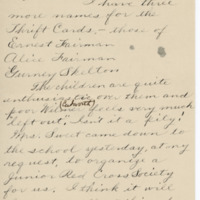 I have three
more names for the
Thrift Cards, - those of
Ernest Fairman
Alice Fairman
Gurney Skelton
The children are quite
enthusiastic over them and
(Schrock)
poor Wilmer feels very much
"left out". Isn't it a pity!
Mrs. Sweet came down to
the school yesterday, at my
request, to organize a
Junior Red Cross Society
for us. I think it will